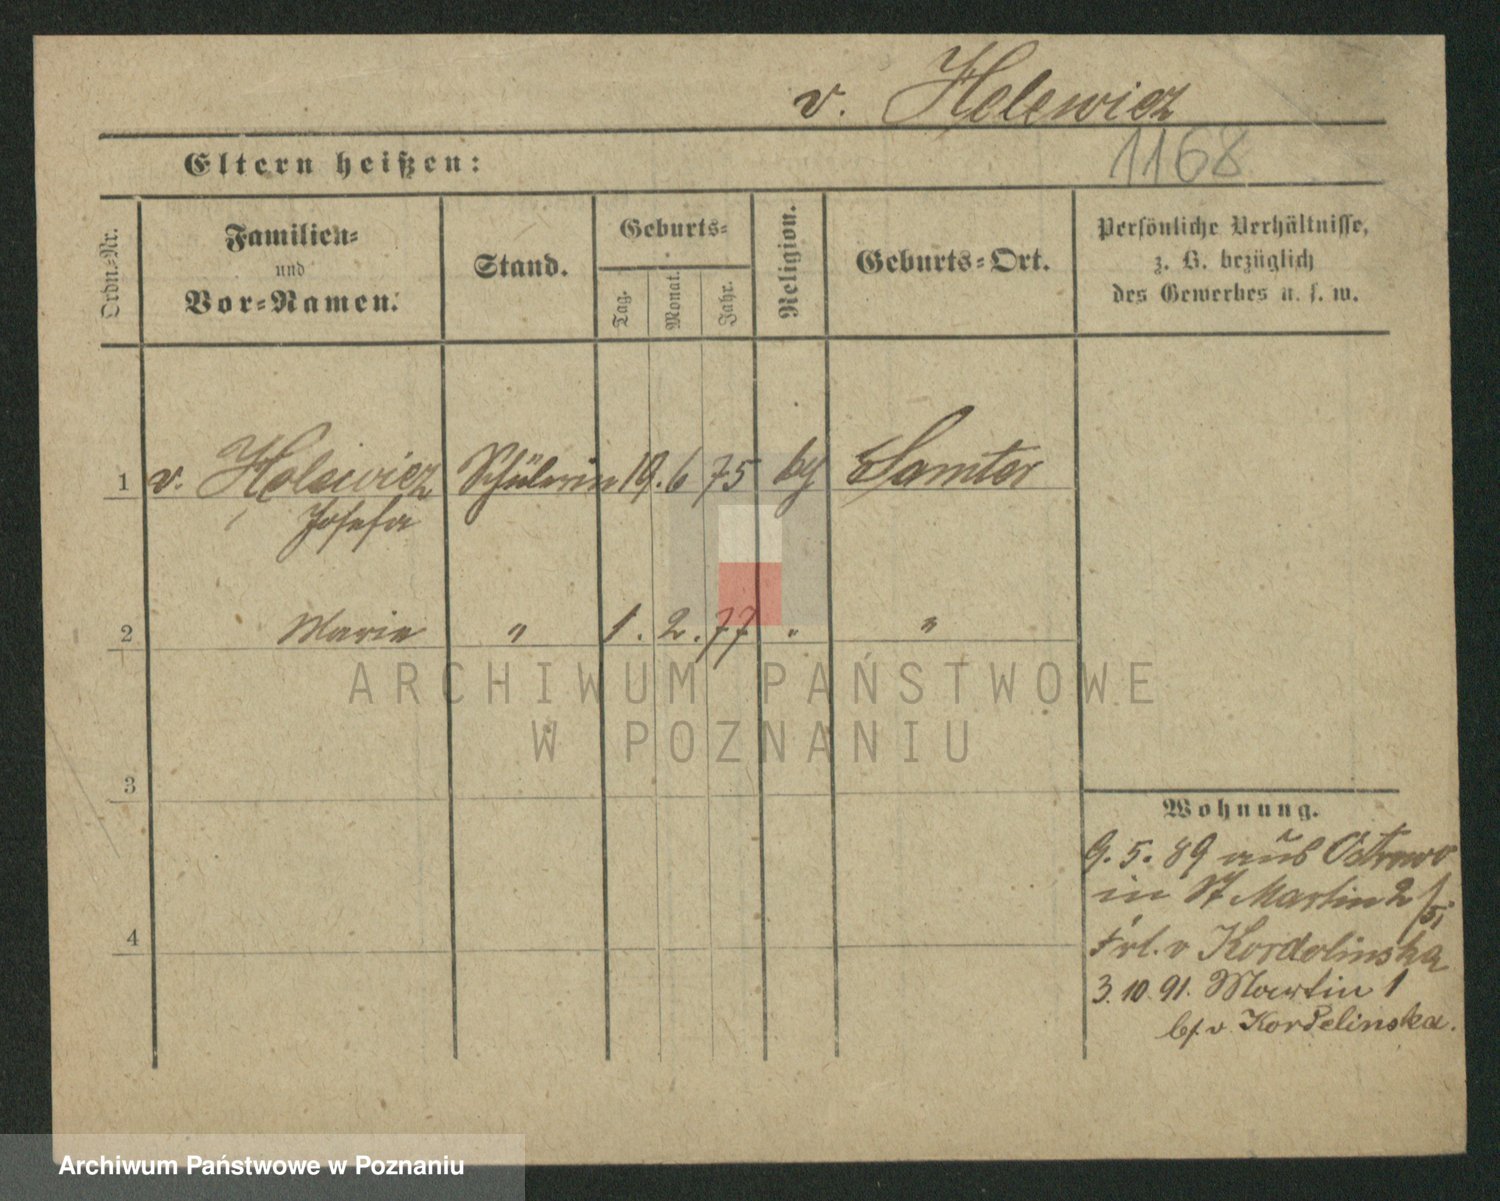 v. Holewicz
1168
Eltern heißen:
Ordn.-Nr.
Familien-
und
Vor-Namen.
Stand.
Geburts-
Tag.
Monat.
Jahr.
Religion.
Geburts-Ort.
Persönliche Verhältnisse,
z. B. bezüglich
des Gewerbes u. s. w.
1 v. Holewicz Schülerin 19. 6 75 Samter
Josefa
2 Marie " 1. 2. 77 " "
3
4
Wohnung.
9. 5. 89 aus Ostrowo
in St Martin 2
Frl. v Kordolinska
3. 10. 91. Martin 1
b/. v. Kordelinska.
ARCHIWUM PAŃSTWOWE
W POZNANIU
Archiwum Państwowe w Poznaniu